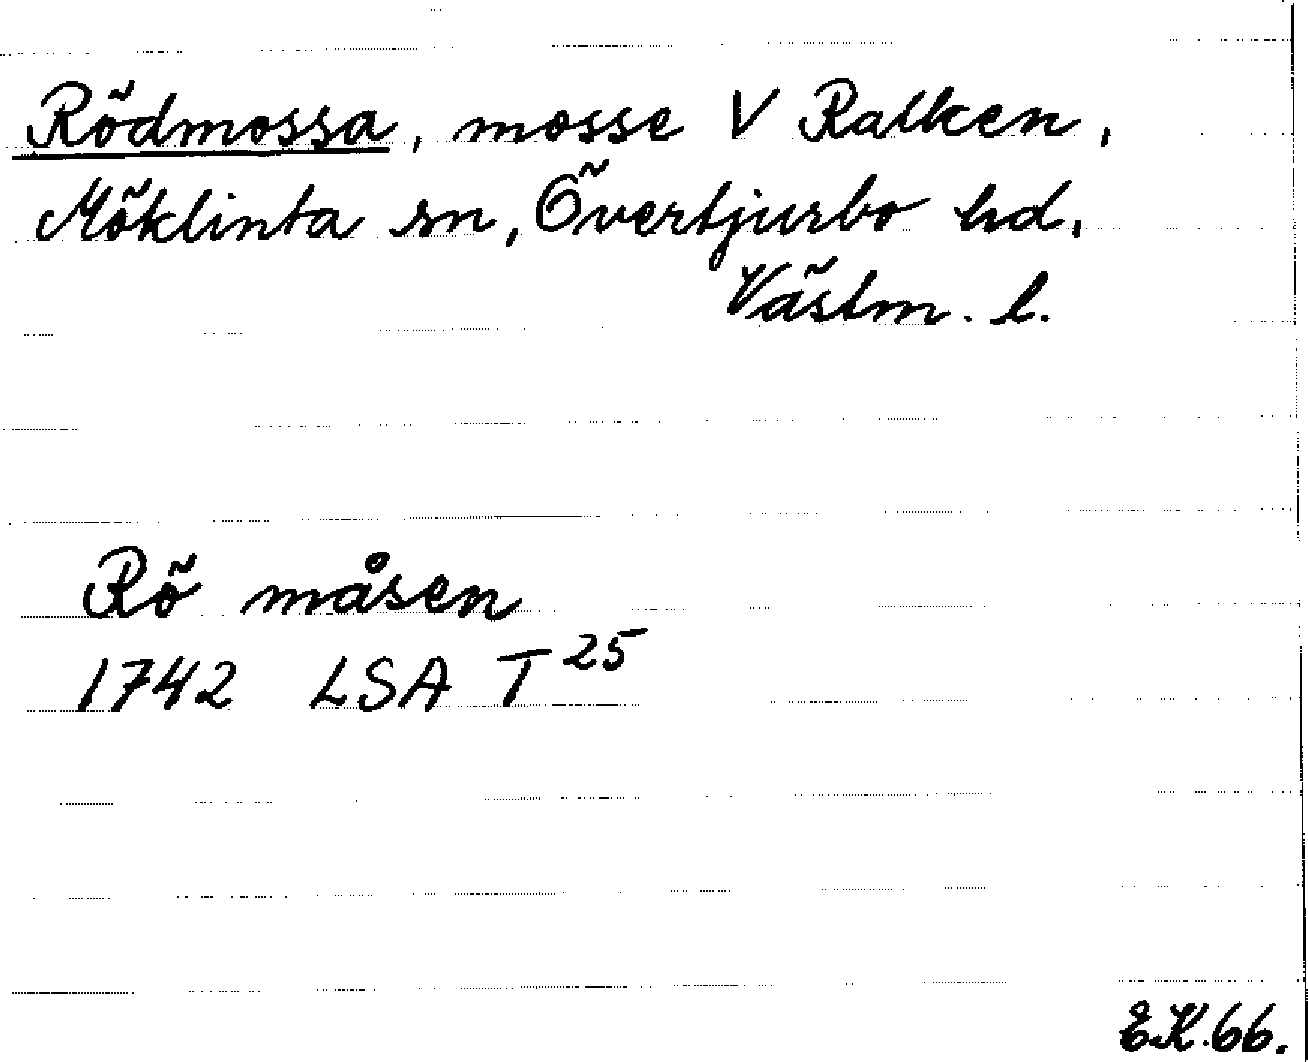 Rödmossa, mosse V Ralken,
Möklinta sn, Övertjurbo hd,
Västm. l.
Rö måsen
1742 LSA T 25
E.K. 66.